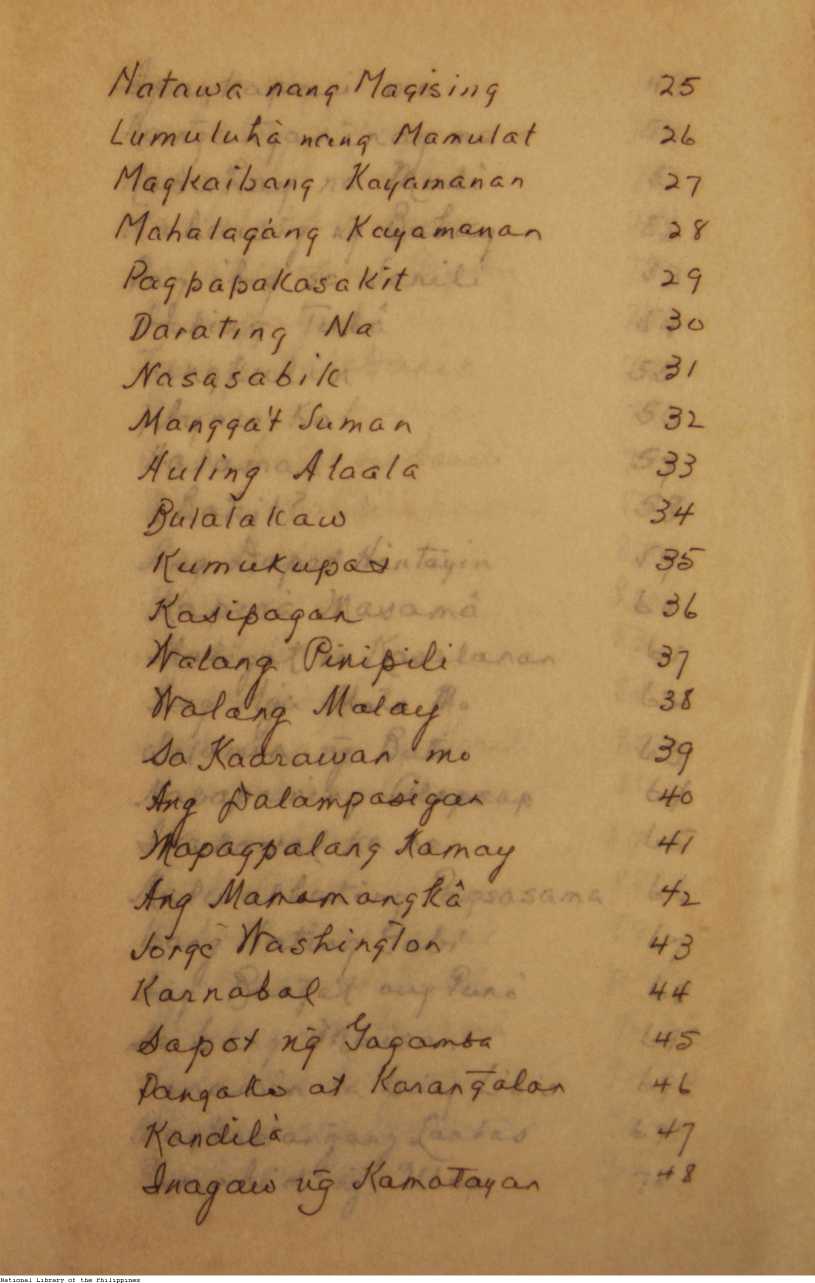 Natawa nang Magising 25
Lumuluhà nang Mamulat 26
Magkaibang Kayamanan 27
Mahalagáng Kayamanan 28
Pagpapakasakit 29
Darating Na 30
Nasasabik 31
Mangga't Suman 32
Huling Alaala 33
Bulalakaw 34
Kumukupas 35
Kasipagan 36
Walang Pinipili 37
Walang Malay 38
Sa Kaarawan mo 39
Ang Dalampasigan 40
Mapagpalang Kamay 41
Ang Mamamangkâ 42
Jorge Washington 43
Karnabal 44
Sapot ng̃ Gagamba 45
Pangako at Karang̃alan 46
Kandilà 47
Inagaw ng̃ Kamatayan 48
National Library of the Philippines